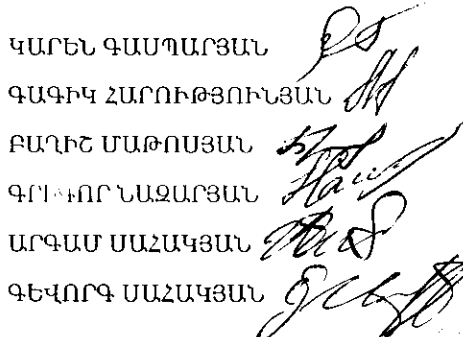 ԿԱՐԵՆ ԳԱՍՊԱՐՅԱՆ
ԳԱԳԻԿ ՀԱՐՈՒԹՅՈՒՆՅԱՆ
ԲԱՂԻՇ ՄԱԹՈՍՅԱՆ
ՆԱԶԱՐՅԱՆ
ԱՐԳԱՄ ՍԱՀԱԿՅԱՆ
ԳԵՎՈՐԳ ՍԱՀԱԿՅԱՆ